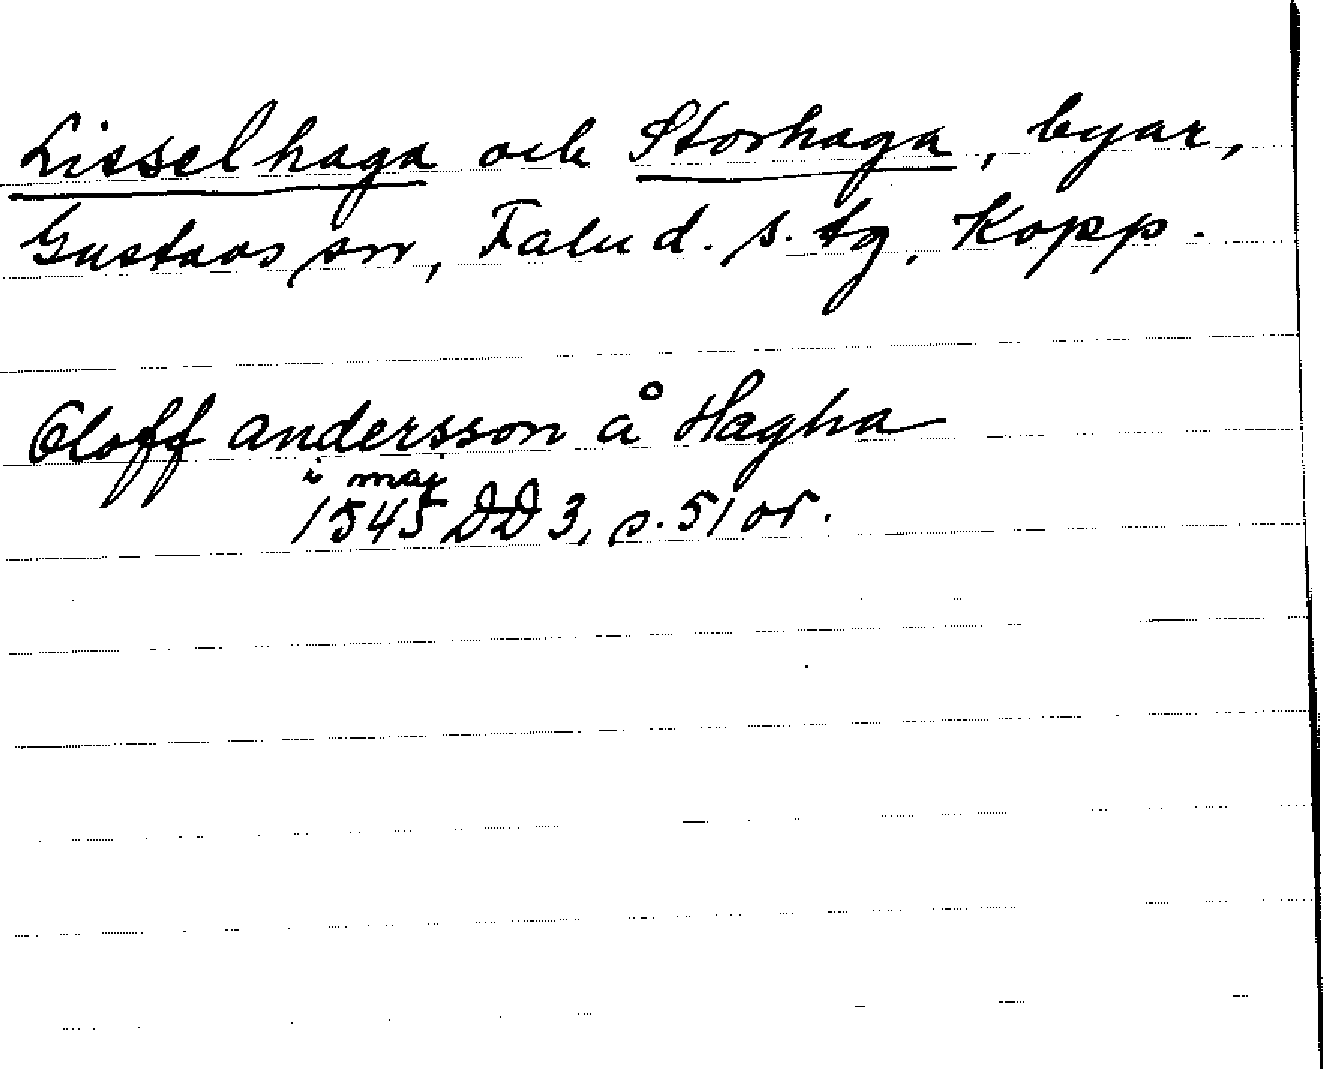 Lisselhaga och Storhaga, byar,
Gustavs sn, Falu d. s. tg, Kopp.
Oloff andersson å Hagha
i maj
1545 DD 3, s. 51 or.